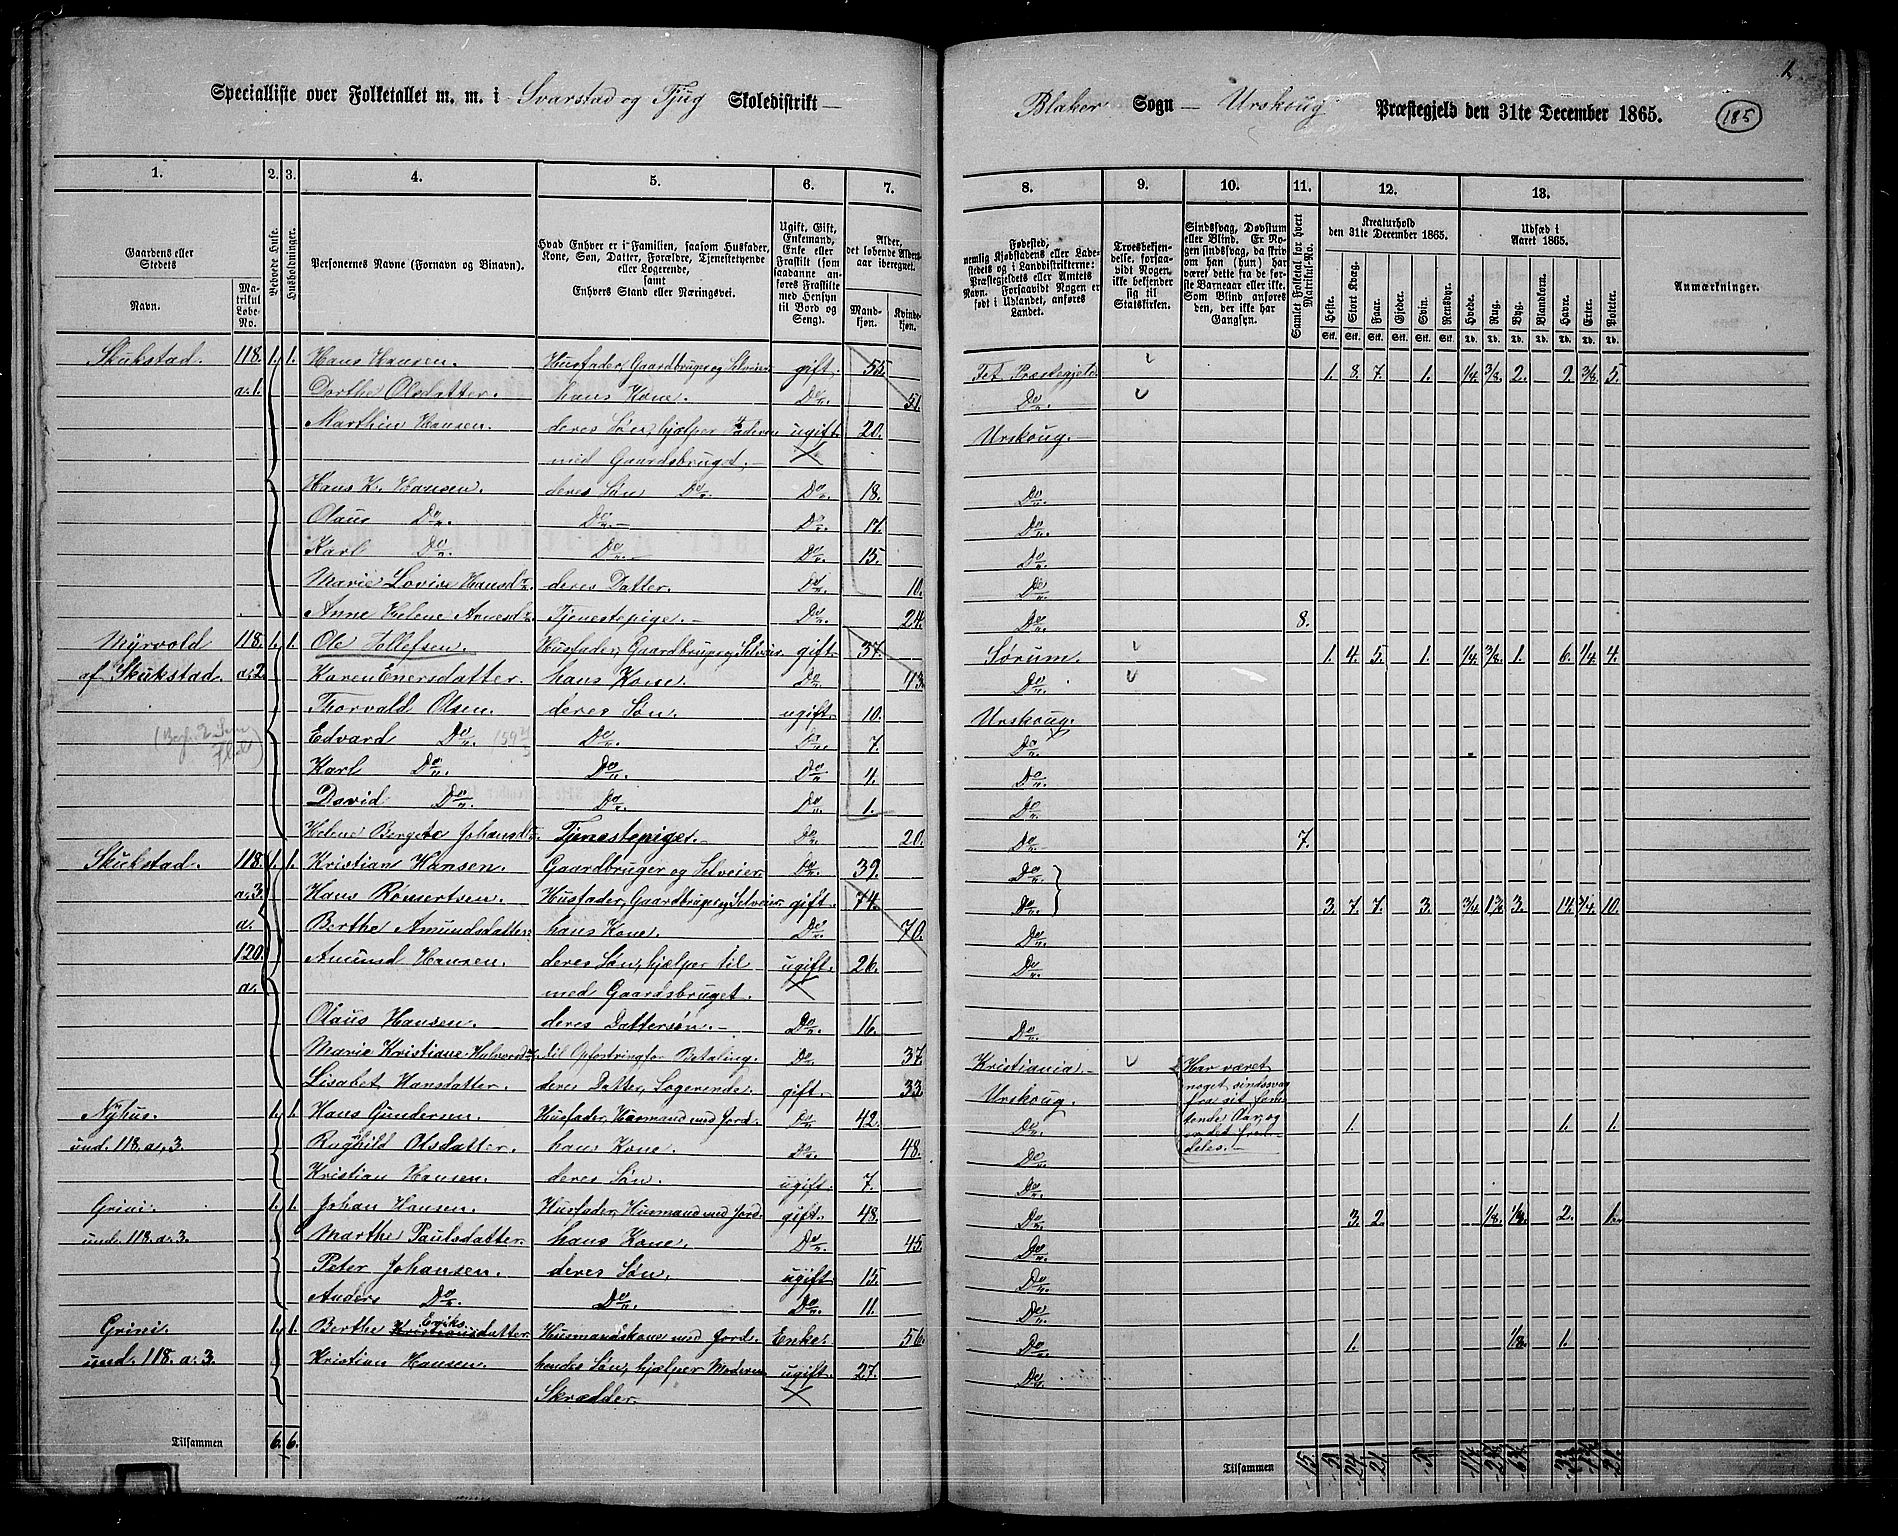 Specialliste over Folketallet m. m. i Svarstad og Tjug Skoledistrikt
Blaker Sogn Urskoug Præstegjeld den 31te December 1865. 185
1. 2. 3. 4. 5. 6. 7. 8. 9. 10. 11. 12. 13.
Gaardens eller Stedets
Navn. Matrikul Løbe-No.
Bebvede Huse.
Husholdninger.
Personernes Navne (Fornavn og Binavn).
Hvad Enhver er i Familien, saasom Husfader, Kone, Søn, Datter, Forældre, Tjenestetyende eller Logerende, samt Enhvers Stand eller Næringsvei.
Ugift, Gift, Enkemand, Enke eller Fraskilt (som saadanne anføres Fraskilte med Hensyn til Bord og Seng).
Alder, det løbende Aldersaar iberegnet.
Mandkjøn. Kvindekjøn.
Fødested, nemlig Kjøbstadens eller Ladestedets og i Landdistrikterne: Præstegjeldets eller Amtets Navn. Forsaavidt Nogen er født i Udlandet, anføres Landet.
Troesbekjendelse, forsaavidt Nogen ikke bekjender sig til Statskirken.
Sindssvag, Døvstum eller Blind. Er Nogen sindssvag, da skriv om han (hun) har været dette fra de første Barneaar eller ikke. Som Blind anføres den, der ikke har Gangsyn.
Samlet Folketal for hvert Matrikul-No.
Kreaturhold den 31te December 1865.
Heste. Stort Kvæg. Faar. Gjeder. Svin. Rensdyr.
Udsæd i Aaret 1865.
Hvede. Rug. Byg. Blandkorn. Havre. Erter. Poteter.
Anmærkninger.
Skukstad. 118. 1. 1. Hans Hansen. Husfader, Gaardbruger og Selveier gift. 55. Fet Præstegjeld. 1. 8. 7. 1. 1/4 3/8 2. 9. 3/8 5.
a. 1. Dorthe Olsdatter. hans Kone. Do. 51. Do.
Marthin Hansen. deres Søn, hjælper Faderen ugift. 20. Urskoug.
med Gaardsbruget.
Hans K. Hansen. deres Søn Do. Do. 18. Do.
Olaus Do. Do. Do. 17. Do.
Karl Do. Do. Do. 15. Do.
Marie Lovise Hansd. deres Datter. Do. 10. Do.
Anne Helene Arnesd. Tjenestepige. Do. 24. Do. 8.
Myrvold 118. 1. 1. Ole Tollefsen. Husfader, Gaardbruger og Selveier gift. 37. Sørum. 1. 4. 5. 1. 1/4 3/8 1. 6. 1/4 4.
af Skukstad. a. 2. Karen Enersdatter. hans Kone. Do. 43. Do.
Thorvald Olsen. deres Søn. ugift. 10. Urskoug.
Edvard Do. Do. Do. 7. Do.
Karl Do. Do. Do. 4. Do.
David Do. Do. Do. 1. Do.
Helene Bergete Johansd. Tjenestepige. Do. 20. Do. 7.
Skukstad. 118. 1. 1. Kristian Hansen. Gaardbruger og Selveier. Do. 39. Do.
a. 3. Hans Romertsen. Husfader, Gaardbruger og Selveier gift. 74. Do. 3. 7. 7. 3. 3/4 3. 14. 3/4 10.
a. Berthe Amundsdatter. hans Kone. Do. 70. Do.
120. Amund Hansen. deres Søn, hjælper til ugift. 26. Do.
a. med Gaardsbruget.
Olaus Hansen. deres Dattersøn. Do. 16. Do.
Marie Kristiane Halvorsd. til Opfostring for Betaling. Do. 37. Kristiania. Har været
noget sindssvag
fra sit fem-
tende Aar, og
er det frem-
deles.
Lisabet Hansdatter. deres Datter, Logerende. gift. 33. Urskoug.
Nyhus. 1. 1. Hans Gundersen. Husfader, Husmand med Jord. Do. 42. Do. 1. 1. 1.
und. 118. a. 3. Raghild Olsdatter. hans Kone. Do. 48. Do.
Kristian Hansen. deres Søn. ugift. 7. Do.
Grini. 1. 1. Johan Hansen. Husfader, Husmand med Jord. gift. 48. Do. 3. 2. 1/8 1/2 2. 1.
und. 118. a. 3. Marthe Paulsdatter. hans Kone. Do. 45. Do.
Peter Johansen. deres Søn. ugift 15. Do.
Anders Do. Do. Do. 11. Do.
Grini. 1. 1. Berthe Eriksdatter. Husmandskone med Jord. Enke. 56. Do. 1. 1/8 1.
und. 118. a. 3. Kristian Hansen. hendes Søn, hjælper Moderen ugift. 27. Do.
Skrædder.
Tilsammen 6. 6.
Tilsammen 15. 5. 24. 21. 5.